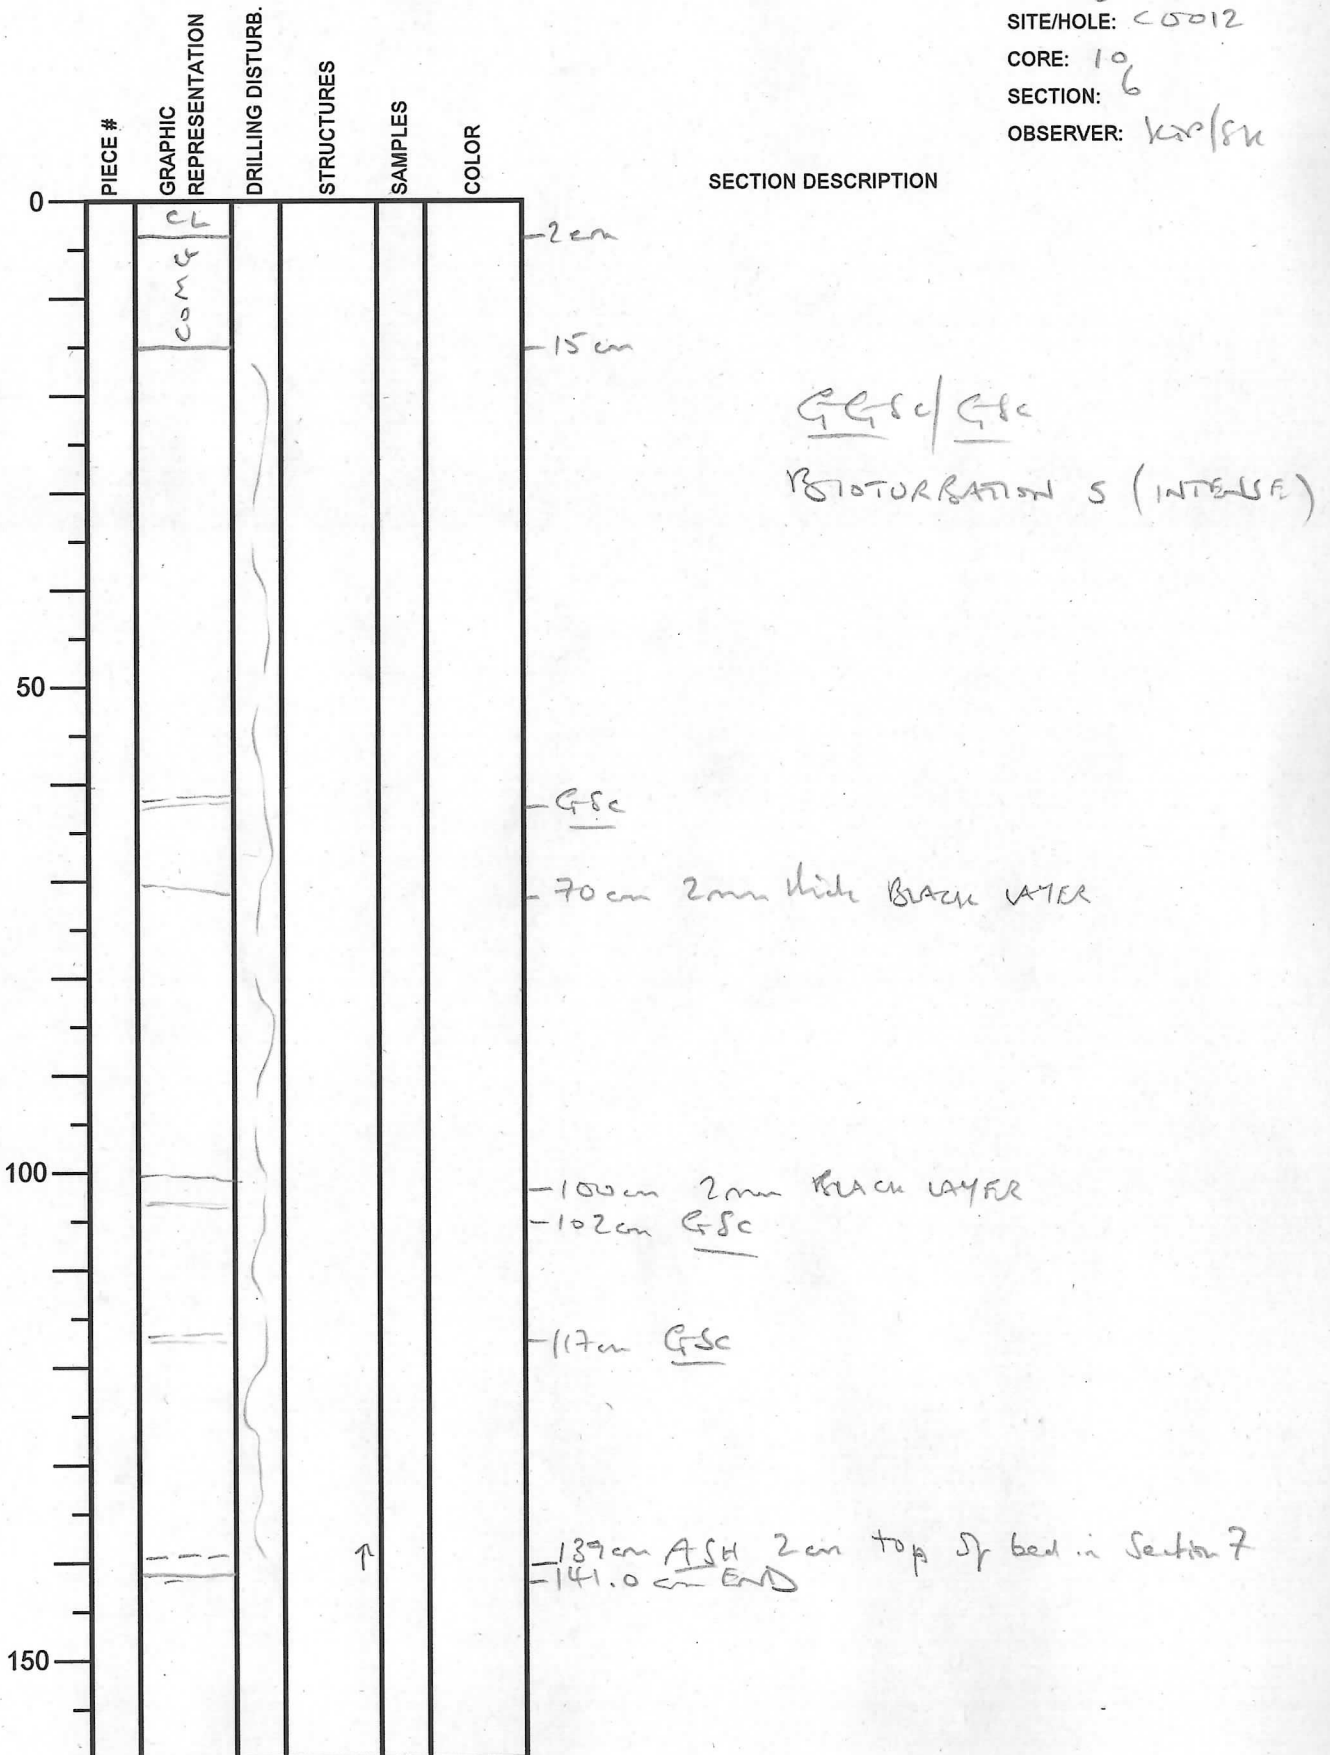 SITE/HOLE: C0012
CORE: 10
SECTION: 6
OBSERVER:
PIECE #
GRAPHIC REPRESENTATION
DRILLING DISTURB.
STRUCTURES
SAMPLES
COLOR
SECTION DESCRIPTION
0
CL
2 cm
COMG
15 cm
GGSc/GSc
BIOTURBATION 5 (INTENSE)
50
GSc
70 cm 2mm thick BLACK LAYER
100
100cm 2mm BLACK LAYER
102cm GSc
117cm GSc
139cm ASH 2cm top of bed in Section 7
141.0 cm END
150